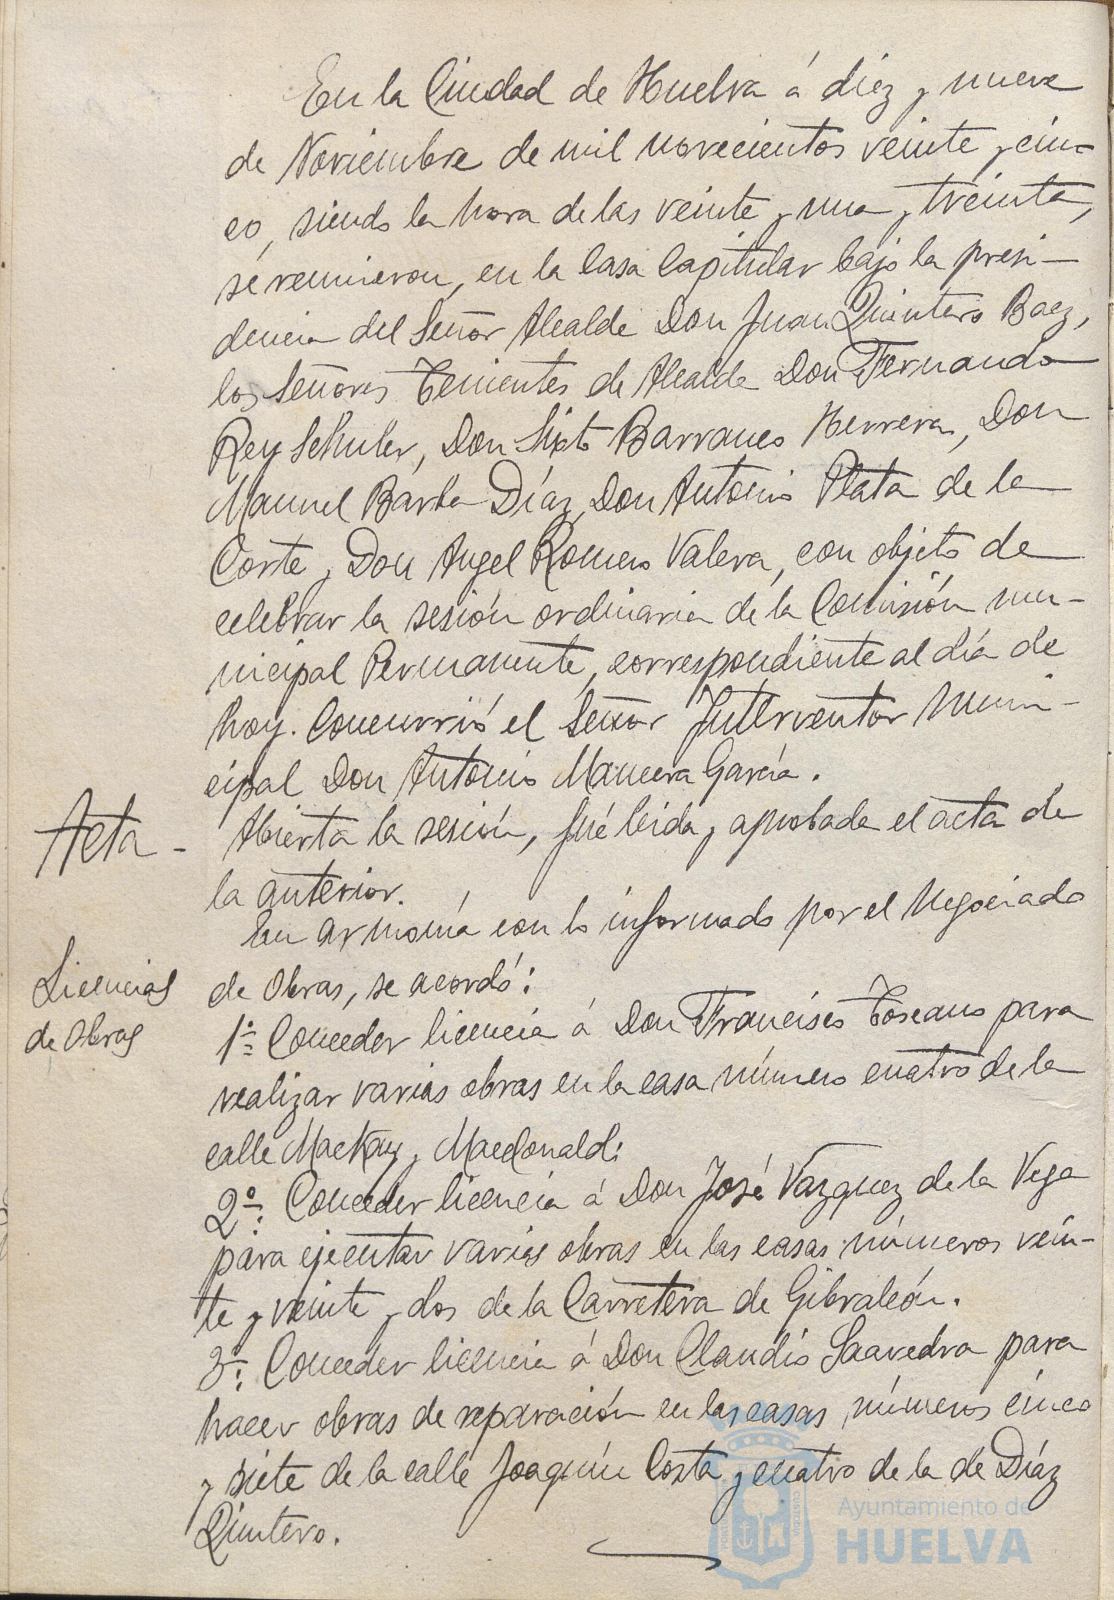 En la Ciudad de Huelva á diez y nueve
de Noviembre de mil novecientos veinte y cin-
co, siendo la hora de las veinte y una y treinta,
se reunieron, en la Casa Capitular bajo la presi-
dencia del Señor Alcalde Don Juan Quintero Baez,
los Señores Tenientes de Alcalde Don Fernando
Rey Schuler, Don Sixto Barranco Herrera, Don
Manuel Barba Díaz, Don Antonio Plata de la
Corte y Don Angel Romero Valera, con objeto de
celebrar la sesión ordinaria de la Comisión mu-
nicipal Permanente, correspondiente al día de
hoy. Concurrió el Señor Interventor Muni-
cipal Don Antonio Mancera García.
Acta -
Abierta la sesión, fué leida y aprobada el acta de
la anterior.
En armonía con lo informado por el Negociado
Licencias
de Obras, se acordó:
de Obras
1º: Conceder licencia á Don Francisco Toscano para
realizar varias obras en la casa número cuatro de la
calle Mackay y Macdonald:
2º: Conceder licencia á Don José Vazquez de la Vega
para ejecutar varias obras en las casas números vein-
te y veinte y dos de la Carretera de Gibraleón.
3º: Conceder licencia á Don Claudio Saavedra para
hacer obras de reparación en las casas, números cinco
y siete de la calle Joaquín Costa y cuatro de la de Díaz
Quintero.
Ayuntamiento de
HUELVA